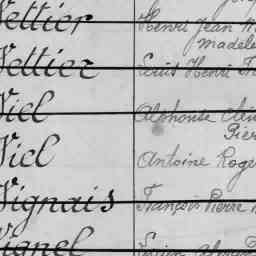 Vettier Henri Jean
Madele
Vettier Louis Henri
Viel Alphonse
Pier
Viel Antoine Roge
Vignais François Pierre
Vignel